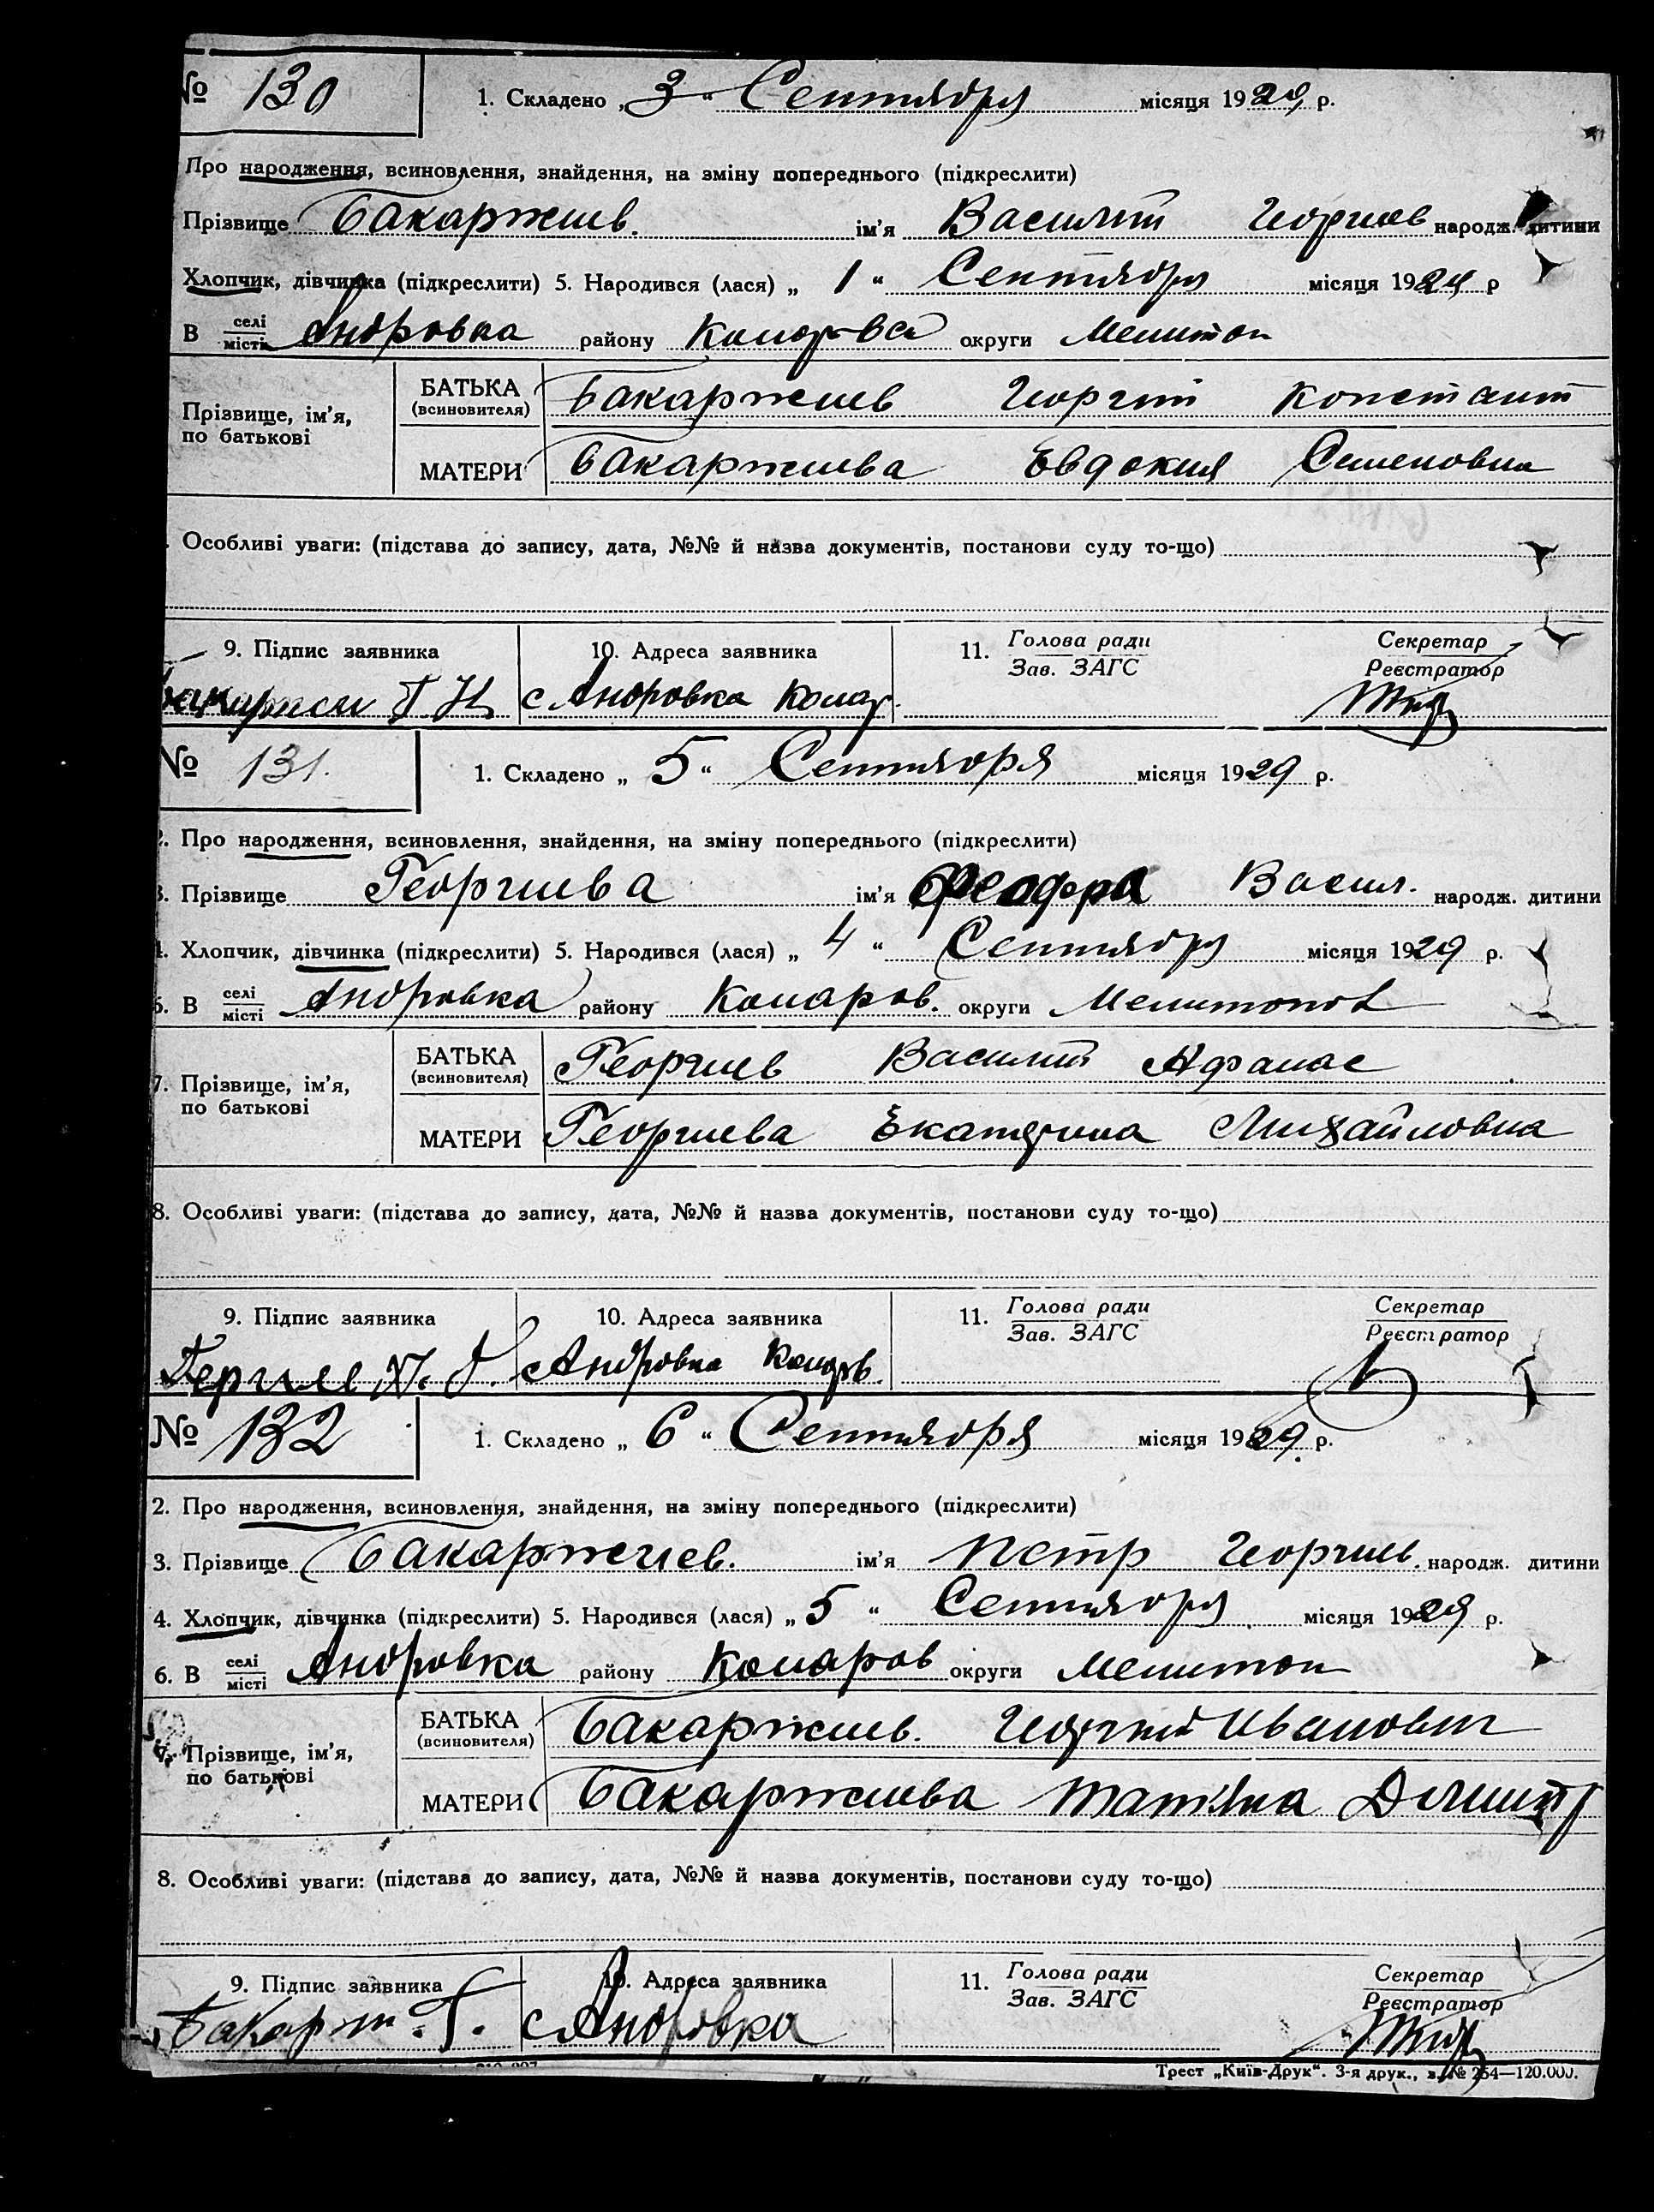 № 130 1. Складено „3“ Сентября місяця 1929 р.
Про народження, всиновлення, знайдення, на зміну попереднього (підкреслити)
Прізвище Бакаржиев. ім'я Василий Георгиев народж. дитини
Хлопчик, дівчинка (підкреслити) 5. Народився (лася) „ 1 “ Сентября місяця 1929 р
В селі місті Андровка району округи Мелитоп
Прізвище, ім'я, по батькові БАТЬКА (всиновителя) Бакаржиев Георгий Констант
МАТЕРИ Бакаржиева Евдокия Семеновна
Особливі уваги: (підстава до запису, дата, №№ й назва документів, постанови суду то-що)
9. Підпис заявника 10. Адреса заявника 11. Голова ради Зав. ЗАГС Секретар Реєстратор
с Андровка Комар.
№ 131. 1. Складено „ 5 “ Сентября місяця 1929 р.
2. Про народження, всиновлення, знайдення, на зміну попереднього (підкреслити)
3. Прізвище Георгиева ім'я Васил. народж. дитини
4. Хлопчик, дівчинка (підкреслити) 5. Народився (лася) „ 4 “ Сентября місяця 1929 р.
6. В селі місті Андровка району Комаров. округи Мелитопол
7. Прізвище, ім'я, по батькові БАТЬКА (всиновителя) Георгиев Василий Афанас
МАТЕРИ Георгиева Екатерина Михайловна
8. Особливі уваги: (підстава до запису, дата, №№ й назва документів, постанови суду то-що)
9. Підпис заявника 10. Адреса заявника 11. Голова ради Зав. ЗАГС Секретар Реєстратор
с Андровка
№ 132 1. Складено „ 6 “ Сентября місяця 1929 р.
2. Про народження, всиновлення, знайдення, на зміну попереднього (підкреслити)
3. Прізвище Бакаржиев. ім'я Петр Георгиев. народж. дитини
4. Хлопчик, дівчинка (підкреслити) 5. Народився (лася) „ 5 “ Сентября місяця 1929 р.
6. В селі місті Андровка району Комаров округи Мелитоп
7. Прізвище, ім'я, по батькові БАТЬКА (всиновителя) Бакаржиев. Георгий Иванович
МАТЕРИ Бакаржиева Татяна Дмитр
8. Особливі уваги: (підстава до запису, дата, №№ й назва документів, постанови суду то-що)
9. Підпис заявника 10. Адреса заявника 11. Голова ради Зав. ЗАГС Секретар Реєстратор
Бакарж. Г. с Андровка
Трест „Київ-Друк“. 3-я друк., з. № 254—120.000.